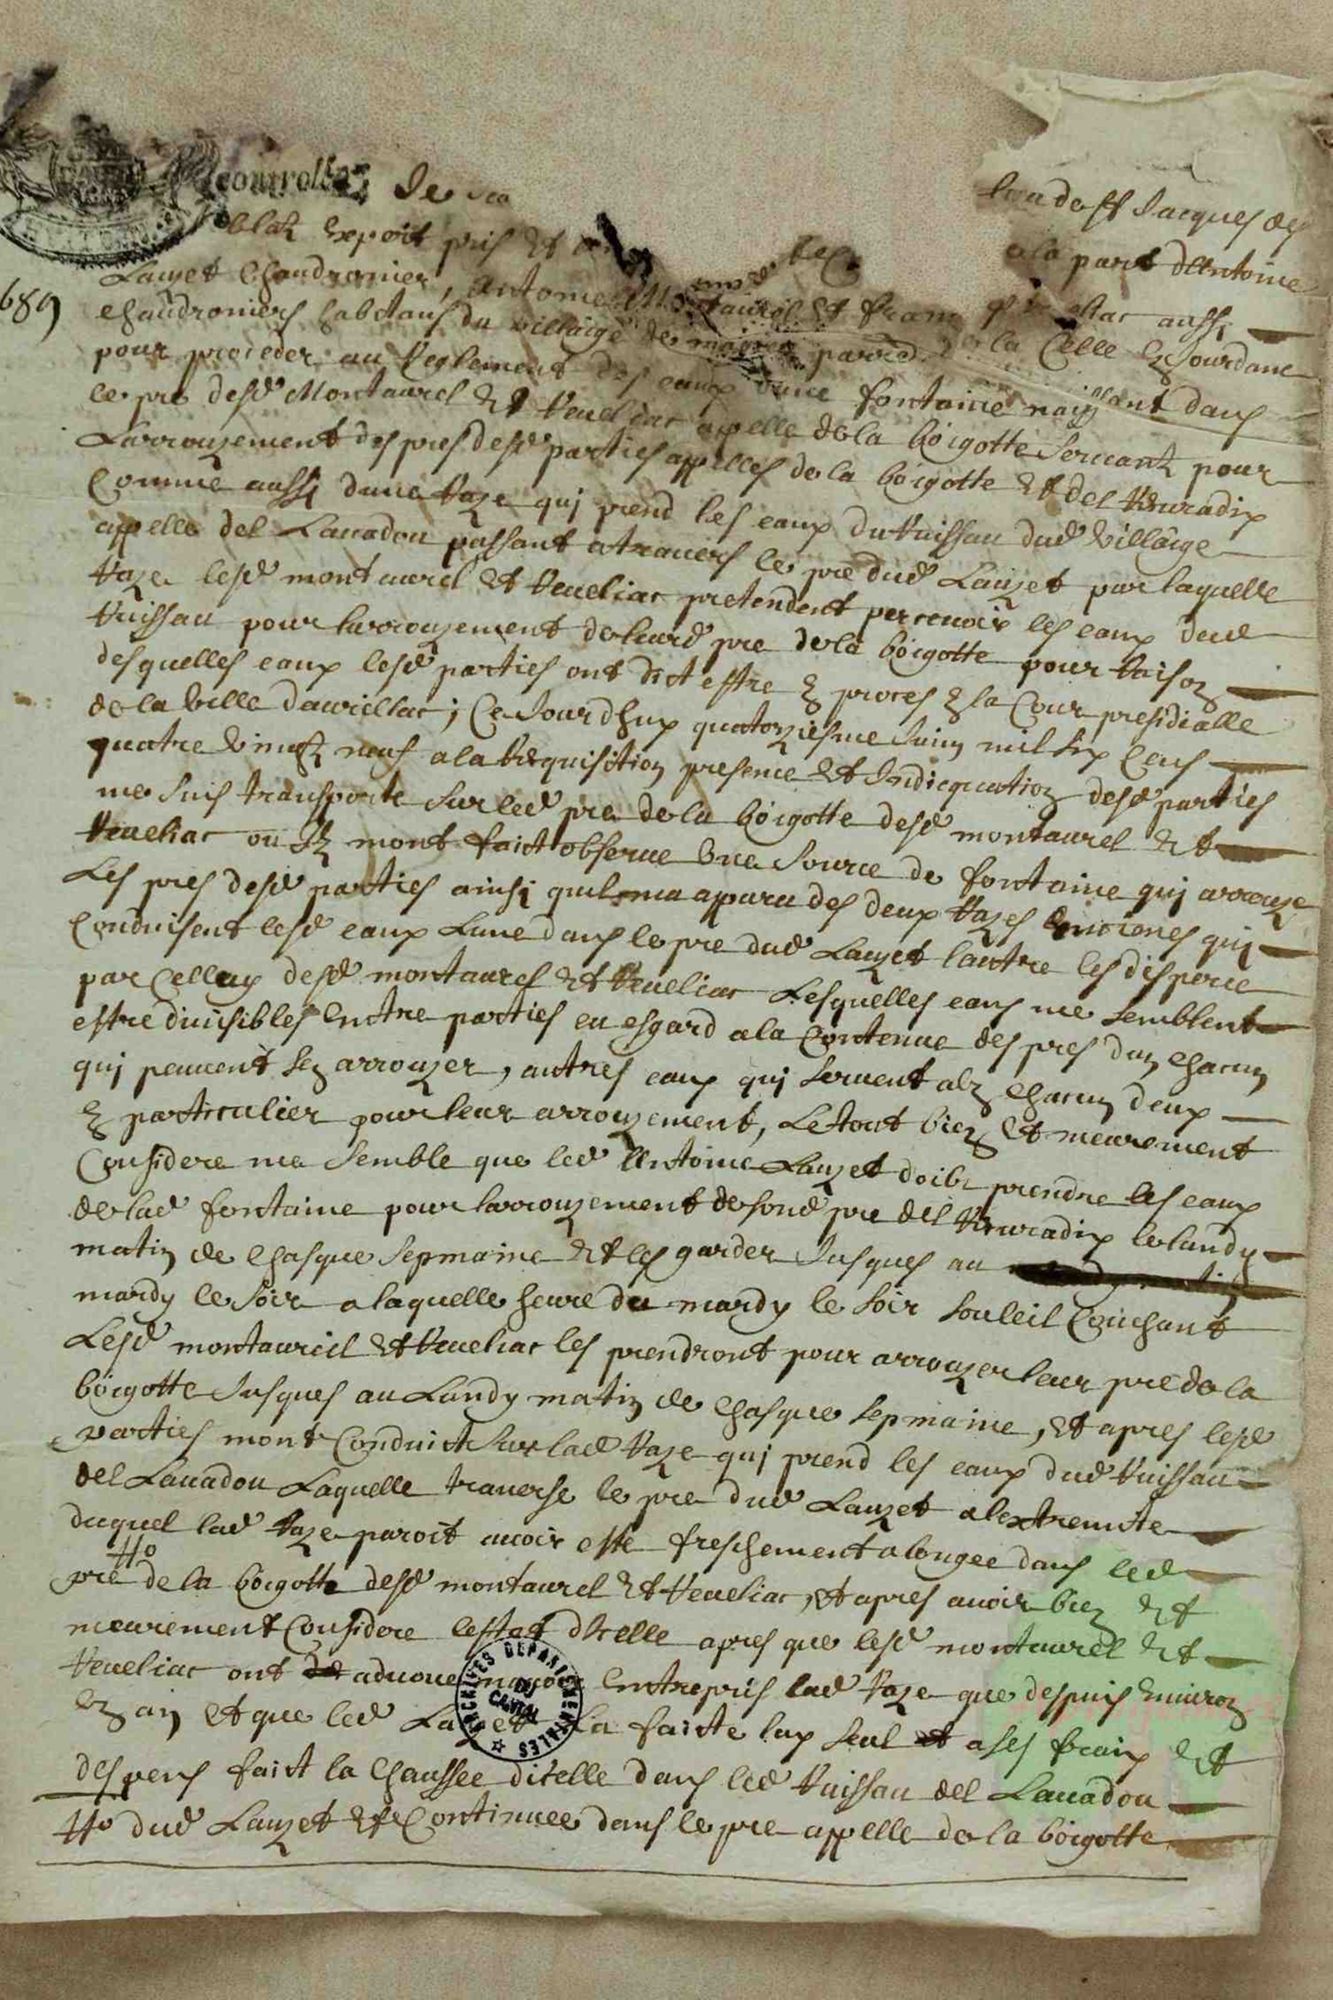 controlle de
da sr Jacques de
blat expert pris et
a la part dAntoine
Lauzet chaudronier, Antoine Montaurel et fran veliac aussi
689
chaudroniers habitans du villaige de parred de la Celle E Jourdane
pour proceder au reglement des eaux dune fontaine naissant dans
le pre desd Montaurel et Veueliac apelle de la boigotte seruant pour
Larrouzement des pres desd parties appelles de la boigotte et del Veuradix
Comme aussi dune raze quj prend les eaux du ruissau dud Villaige
appelle del Lauadou passant a trauers le pre dud Lauzet par laquelle
raze lesd montaurel et Veueliac pretendent perceuoir les eaux dud
ruissau pour larrouzement de leurd pre de la boigotte pour raison
desquelles eaux lesd parties ont dict estre E proces E la Cour presidialle
de la Ville daurillac; Ce Jourdhuy quatorziesme Juin mil six cens
quatre vingtz neuf a la requisition presence et Indicquation desd parties
me suis transporte sur led pre de la boigotte desd montaurel et
Veueliac ou Ilz mont faict obserue Une source de fontaine quj arrouze
Les pres desd parties ainsi quil ma apparu des deux razes Encienes quj
conduisent lesd eaux Lune dans le pre dud Lauzet lautre les disperce
par Celluy desd montaurel et Veueliac Lesquelles eaux me semblent
estre diuisibles Entre parties eu esgard a la Contenue des pres dun chacun
quj peuuent sen arrouzer, autres eaux quj seruent a un chacun deux
E particulier pour leur arrouzement, Le tout bien et meurement
Considere me semble que led Antoine Lauzet doibt prendre les eaux
de lad fontaine pour larrouzement de sond pre del Veuradix le lundy
matin de chasque sepmaine et les garder Jusques au
mardy le soir a laquelle heure du mardy le soir souleil couchant
Lesd montaurel et Veueliac les prendront pour arrouzer leur pre de la
boigotte Jusques au Lundy matin de chasque sepmaine, et apres lesd
parties mont Conduict sur lad raze quj prend les eaux dud ruissau
del Lauadou Laquelle trauerse le pre dud Lauzet a lextremite
duquel lad raze paroit auoir este freschement alongee dans led
#o
pre de la boigotte desd montaurel et Veueliac, et apres auoir bien et
meurement Considere lestat dicelle apres que lesd montaurel et
Veueliac ont aduoue nauoir Entrepris lad raze que despuis Enuiron
Un an et que led Lauzet la faicte luy seul a ses fraix et
despens faict la chaussee dicelle dans led ruissau del Lauadou
#o dud Lauzet et Continuee dans le pre appelle de la boigotte
ARCHIVES DEPARTEMENTALES
DU
CANTAL